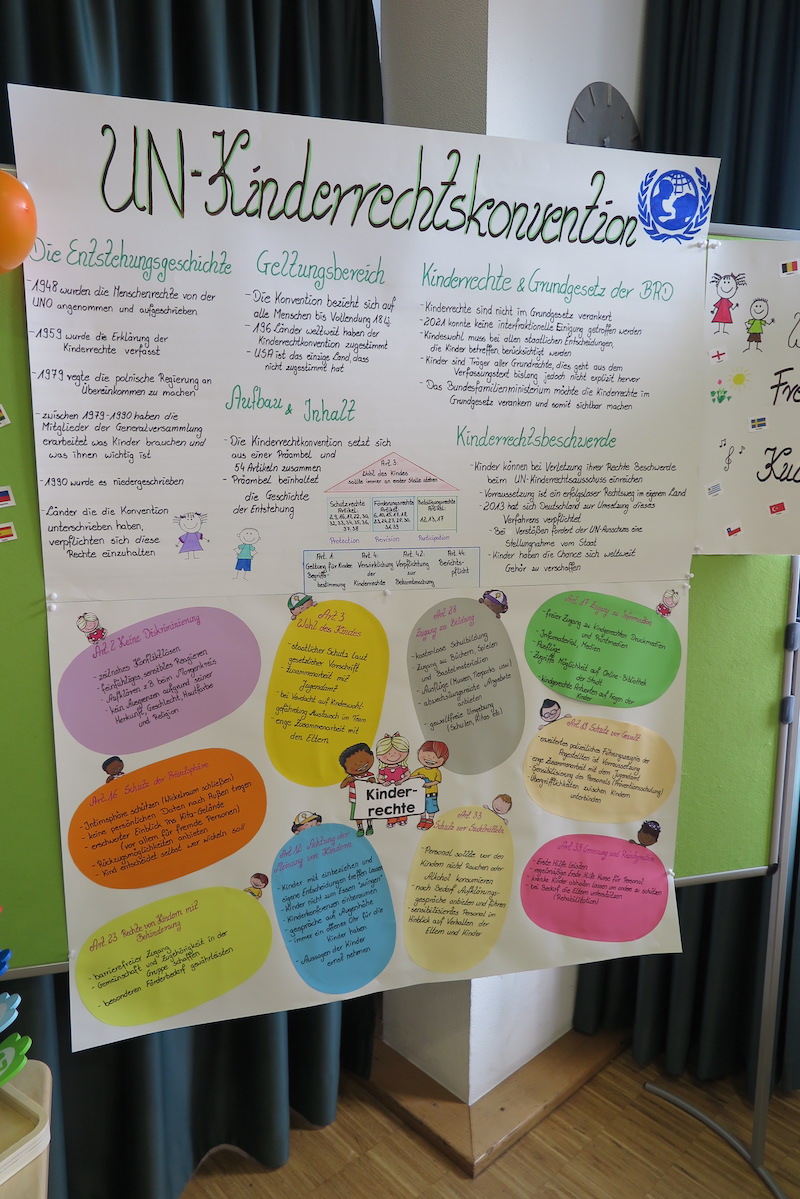 UN-Kinderrechtskonvention
Die Entstehungsgeschichte
-1948 wurden die Menschenrechte von der
UNO angenommen und aufgeschrieben
-1959 wurde die Erklärung der
Kinderrechte verfasst
-1979 regte die polnische Regierung an
Übereinkommen zu machen
-zwischen 1979-1990 haben die
Mitglieder der Generalversammlung
erarbeitet was Kinder brauchen und
was ihnen wichtig ist
-1990 wurde es niedergeschrieben
-Länder die die Konvention
unterschrieben haben,
verpflichten sich diese
Rechte einzuhalten
Geltungsbereich
-Die Konvention bezieht sich auf
alle Menschen bis Vollendung 18 Lj.
-196 Länder weltweit haben der
Kinderrechtkonvention zugestimmt
-USA ist das einzige Land, dass
nicht zugestimmt hat
Aufbau & Inhalt
-Die Kinderrechtkonvention setzt sich
aus einer Präambel und
54 Artikeln zusammen
-Präambel beinhaltet
die Geschichte
der Entstehung
Art. 3
Wohl des Kindes
sollte immer an erster Stelle stehen
Schutzrechte
Artikel
Förderungsrechte
Artikel
Beteiligungsrechte
Artikel
12, 13, 17
Protection
Provision
Participation
Art. 1
Geltung für Kinder
Begriffs-
bestimmung
Art. 4
Verwirklichung
der
Kinderrechte
Art. 42
Verpflichtung
zur
Bekanntmachung
Art. 44
Berichts-
pflicht
Kinderrechte & Grundgesetz der BRD
-Kinderrechte sind nicht im Grundgesetz verankert
-2021 konnte keine interfraktionelle Einigung getroffen werden
-Kindeswohl muss bei allen staatlichen Entscheidungen,
die Kinder betreffen, berücksichtigt werden
-Kinder sind Träger aller Grundrechte, dies geht aus dem
Verfassungstext bislang jedoch nicht explizit hervor
-Das Bundesfamilienministerium möchte die Kinderrechte im
Grundgesetz verankern und somit sichtbar machen
Kinderrechtsbeschwerde
-Kinder können bei Verletzung ihrer Rechte Beschwerde
beim UN-Kinderrechtsausschuss einreichen
-Vorraussetzung ist ein erfolgsloser Rechtsweg im eigenen Land
-2013 hat sich Deutschland zur Umsetzung dieses
Verfahrens verpflichtet
-Bei Verstößen fordert der UN-Auschuss eine
Stellungnahme vom Staat
-Kinder haben die Chance sich weltweit
Gehör zu verschaffen
Art. 2 Keine Diskriminierung
-zeitnahes Konfliktlösen
-feinfühliges, sensibles Reagieren
-Aufklären z.B beim Morgenkreis
-kein Ausgrenzen aufgrund seiner
Herkunft, Geschlecht, Hautfarbe
und Religion
Art. 3
Wohl des Kindes
-staatlicher Schutz laut
gesetzlicher Vorschrift
-Zusammenarbeit mit
Jugendamt
-bei Verdacht auf Kindeswohl-
gefährdung Austausch im Team
-enge Zusammenarbeit mit
den Eltern
Art. 28
Zugang zu Bildung
-kostenlose Schulbildung
-Zugang zu Büchern, Spielen
und Bastelmaterialien
-Ausflüge (Museen, Tierparks usw.)
-abwechslungsreiche Angebote
anbieten
-gewaltfreie Umgebung
(Schulen, Kitas etc.)
Art. 17 Zugang zu Information
-freier Zugang zu kindgerechten Druckmedien
und Printmedien
-Ausflüge
-Infomaterial, Medien
-Zugriffs Möglichkeit auf Online-Bibliothek
der Stadt
-kindgerechte Antworten auf Fragen der
Kinder
Art. 19 Schutz vor Gewalt
-erweitertes polizeiliches Führungszeugnis der
Angestellten ist Vorraussetzung
-enge Zusammenarbeit mit dem Jugendamt
-Sensibilisierung des Personals (Präventionsschulung)
-Übergrifflichkeiten zwischen Kindern
unterbinden
Art. 16 Schutz der Privatsphäre
-Intimsphäre schützen (Wickelraum schließen)
-keine persönlichen Daten nach Außen tragen
-erschwerter Einblick ins Kita-Gelände
(vor allem für fremde Personen)
-Rückzugmöglichkeiten anbieten
-Kind entscheidet selbst wer wickeln soll
Kinder-
rechte
Art. 12 Achtung der
Meinung von Kindern
-Kinder mit einbeziehen und
eigene Entscheidungen treffen lassen
-Kinder nicht zum Essen "zwingen"
-Kinderkonferenzen einberaumen
-gespräche auf Augenhöhe
-immer ein offenes Ohr für die
Kinder haben
-Aussagen der Kinder
ernst nehmen
Art. 33
Schutz vor Suchtmitteln
-Personal sollte vor den
Kindern nicht Rauchen oder
Alkohol konsumieren
-nach Bedarf Aufklärungs-
gespräche anbieten und führen
-sensibilisiertes Personal im
Hinblick auf Verhalten der
Eltern und Kinder
-Erste Hilfe leisten
-regelmäßige Erste Hilfe Kurse für Personal
-kranke Kinder abholen lassen um andere zu schützen
-bei Bedarf die Eltern unterstützen
(Rehabilitation)
Art. 23 Rechte von Kindern mit
Behinderung
-barrierefreier Zugang
-Gemeinschaft und Zugehörigkeit in der
Gruppe schaffen
-besonderen Förderbedarf gewährleisten